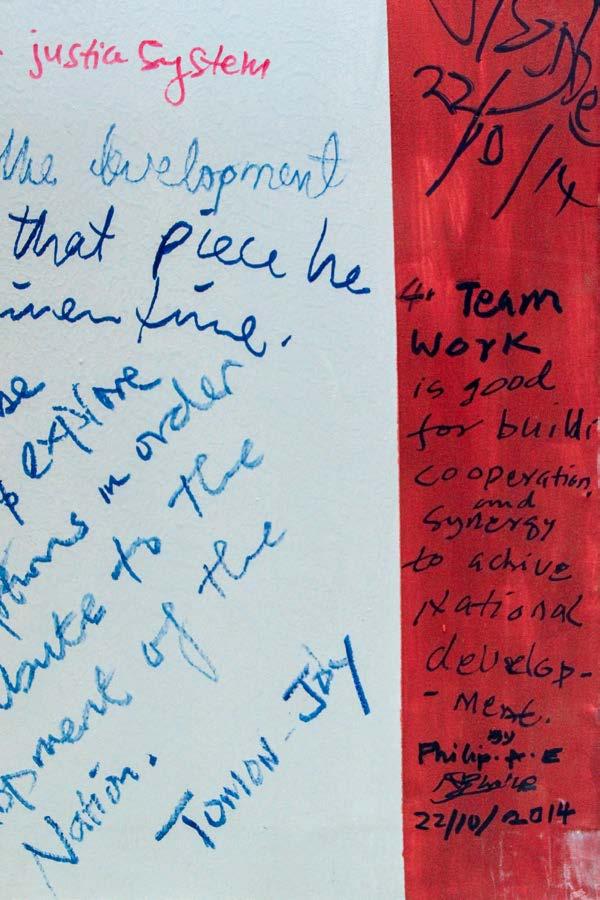 justia System
the development
that piece he
time.
explore
in order
to the
of the
Nation.
Tomon-Joy
22/10/14
4. Team
Work
is good
for buildi
cooperation,
and
Synergy
to achive
National
develop-
- ment.
By
Philip. A. E
22/10/2014